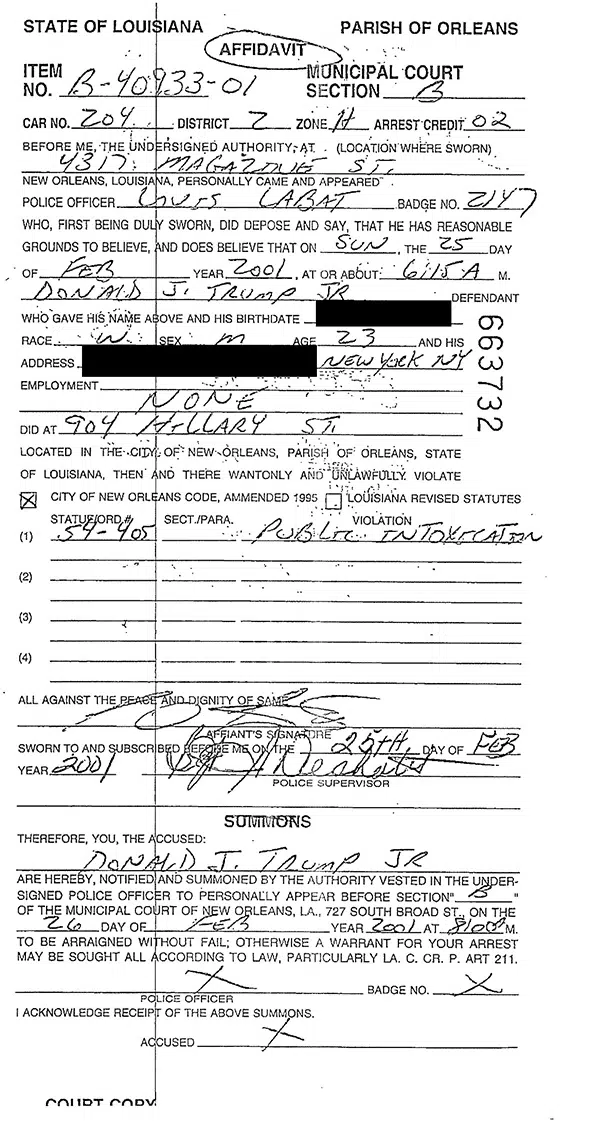 STATE OF LOUISIANA PARISH OF ORLEANS
AFFIDAVIT
ITEM NO. B-40933-01 MUNICIPAL COURT SECTION B
CAR NO. 204 DISTRICT 2 ZONE H ARREST CREDIT 02
BEFORE ME, THE UNDERSIGNED AUTHORITY, AT (LOCATION WHERE SWORN)
4317 MAGAZINE ST.
NEW ORLEANS, LOUISIANA, PERSONALLY CAME AND APPEARED
POLICE OFFICER LOUIS LABAT BADGE NO. 2147
WHO, FIRST BEING DULY SWORN, DID DEPOSE AND SAY, THAT HE HAS REASONABLE
GROUNDS TO BELIEVE, AND DOES BELIEVE THAT ON SUN, THE 25 DAY
OF FEB YEAR 2001, AT OR ABOUT 6:15 A M.
DONALD J. TRUMP JR DEFENDANT
WHO GAVE HIS NAME ABOVE AND HIS BIRTHDATE
RACE W SEX M AGE 23 AND HIS
ADDRESS NEW YORK NY
663732
EMPLOYMENT
NONE
DID AT 904 HILLARY ST.
LOCATED IN THE CITY OF NEW ORLEANS, PARISH OF ORLEANS, STATE
OF LOUISIANA, THEN AND THERE WANTONLY AND UNLAWFULLY VIOLATE
CITY OF NEW ORLEANS CODE, AMMENDED 1995 LOUISIANA REVISED STATUTES
STATUE/ORD.# SECT./PARA. VIOLATION
(1) 54-405 PUBLIC INTOXICATION
(2)
(3)
(4)
ALL AGAINST THE PEACE AND DIGNITY OF SAME
AFFIANT'S SIGNATURE
SWORN TO AND SUBSCRIBED BEFORE ME ON THE 25TH, DAY OF FEB
YEAR 2001
POLICE SUPERVISOR
SUMMONS
THEREFORE, YOU, THE ACCUSED:
DONALD J. TRUMP JR
ARE HEREBY, NOTIFIED AND SUMMONED BY THE AUTHORITY VESTED IN THE UNDER-
SIGNED POLICE OFFICER TO PERSONALLY APPEAR BEFORE SECTION" B "
OF THE MUNICIPAL COURT OF NEW ORLEANS, LA., 727 SOUTH BROAD ST., ON THE
26 DAY OF FEB YEAR 2001 AT 8:00 M.
TO BE ARRAIGNED WITHOUT FAIL; OTHERWISE A WARRANT FOR YOUR ARREST
MAY BE SOUGHT ALL ACCORDING TO LAW, PARTICULARLY LA. C. CR. P. ART 211.
X BADGE NO. X
POLICE OFFICER
I ACKNOWLEDGE RECEIPT OF THE ABOVE SUMMONS.
ACCUSED X
COURT COPY